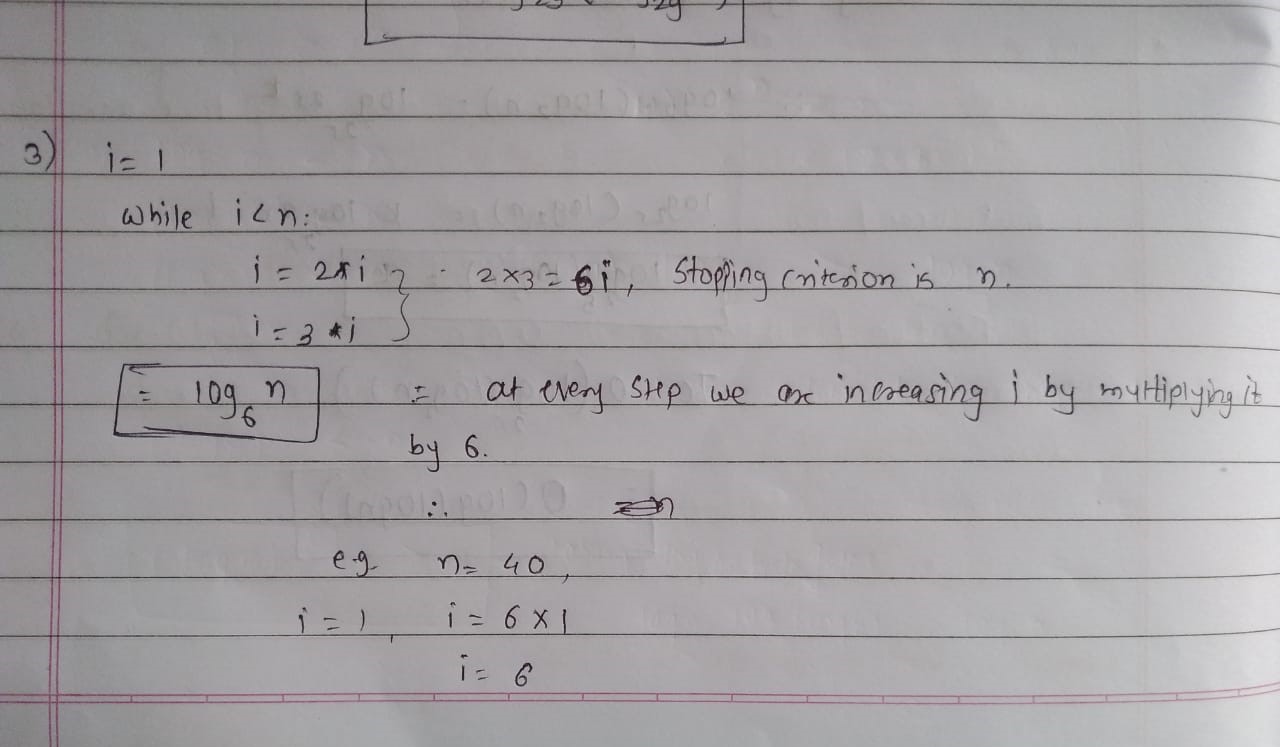 3) i= 1
while i<n:
i = 2*i } 2×3= 6i, Stopping criterion is n.
i = 3 *i
= log₆ n = at every step we are increasing i by multiplying it
by 6.
∴
e.g. n= 40,
i = 1, i = 6 × 1
i = 6